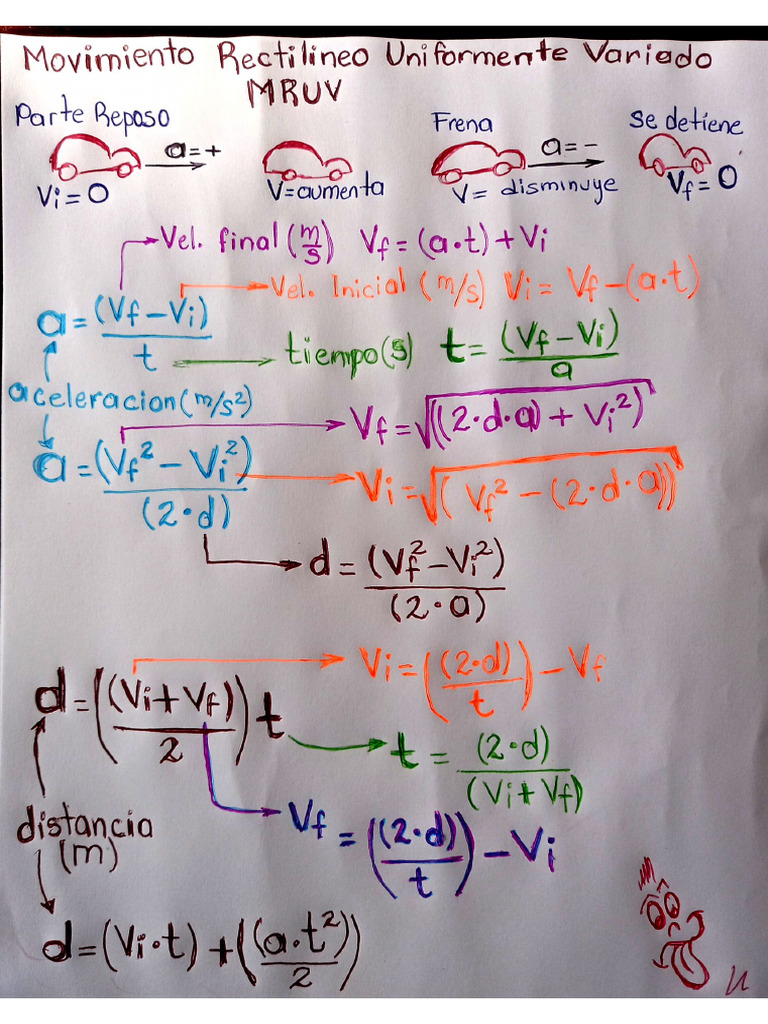 Movimiento Rectilineo Uniformente Variado
MRUV
Parte Reposo
a=+
Vi=0
V=aumenta
Frena
a=-
V= disminuye
Se detiene
Vf=0
Vel. final (m/s) Vf=(a·t)+Vi
Vel. Inicial (m/s) Vi= Vf-(a·t)
a=(Vf-Vi)/t
tiempo(s) t=(Vf-Vi)/a
aceleracion(m/s²)
Vf=√((2·d·a)+Vi²)
a=(Vf²-Vi²)/(2·d)
Vi=√(Vf²-(2·d·a))
d=(Vf²-Vi²)/(2·a)
Vi=((2·d)/t)-Vf
d=((Vi+Vf)/2)t
t=(2·d)/(Vi+Vf)
Vf=((2·d)/t)-Vi
distancia
(m)
d=(Vi·t)+((a·t²)/2)